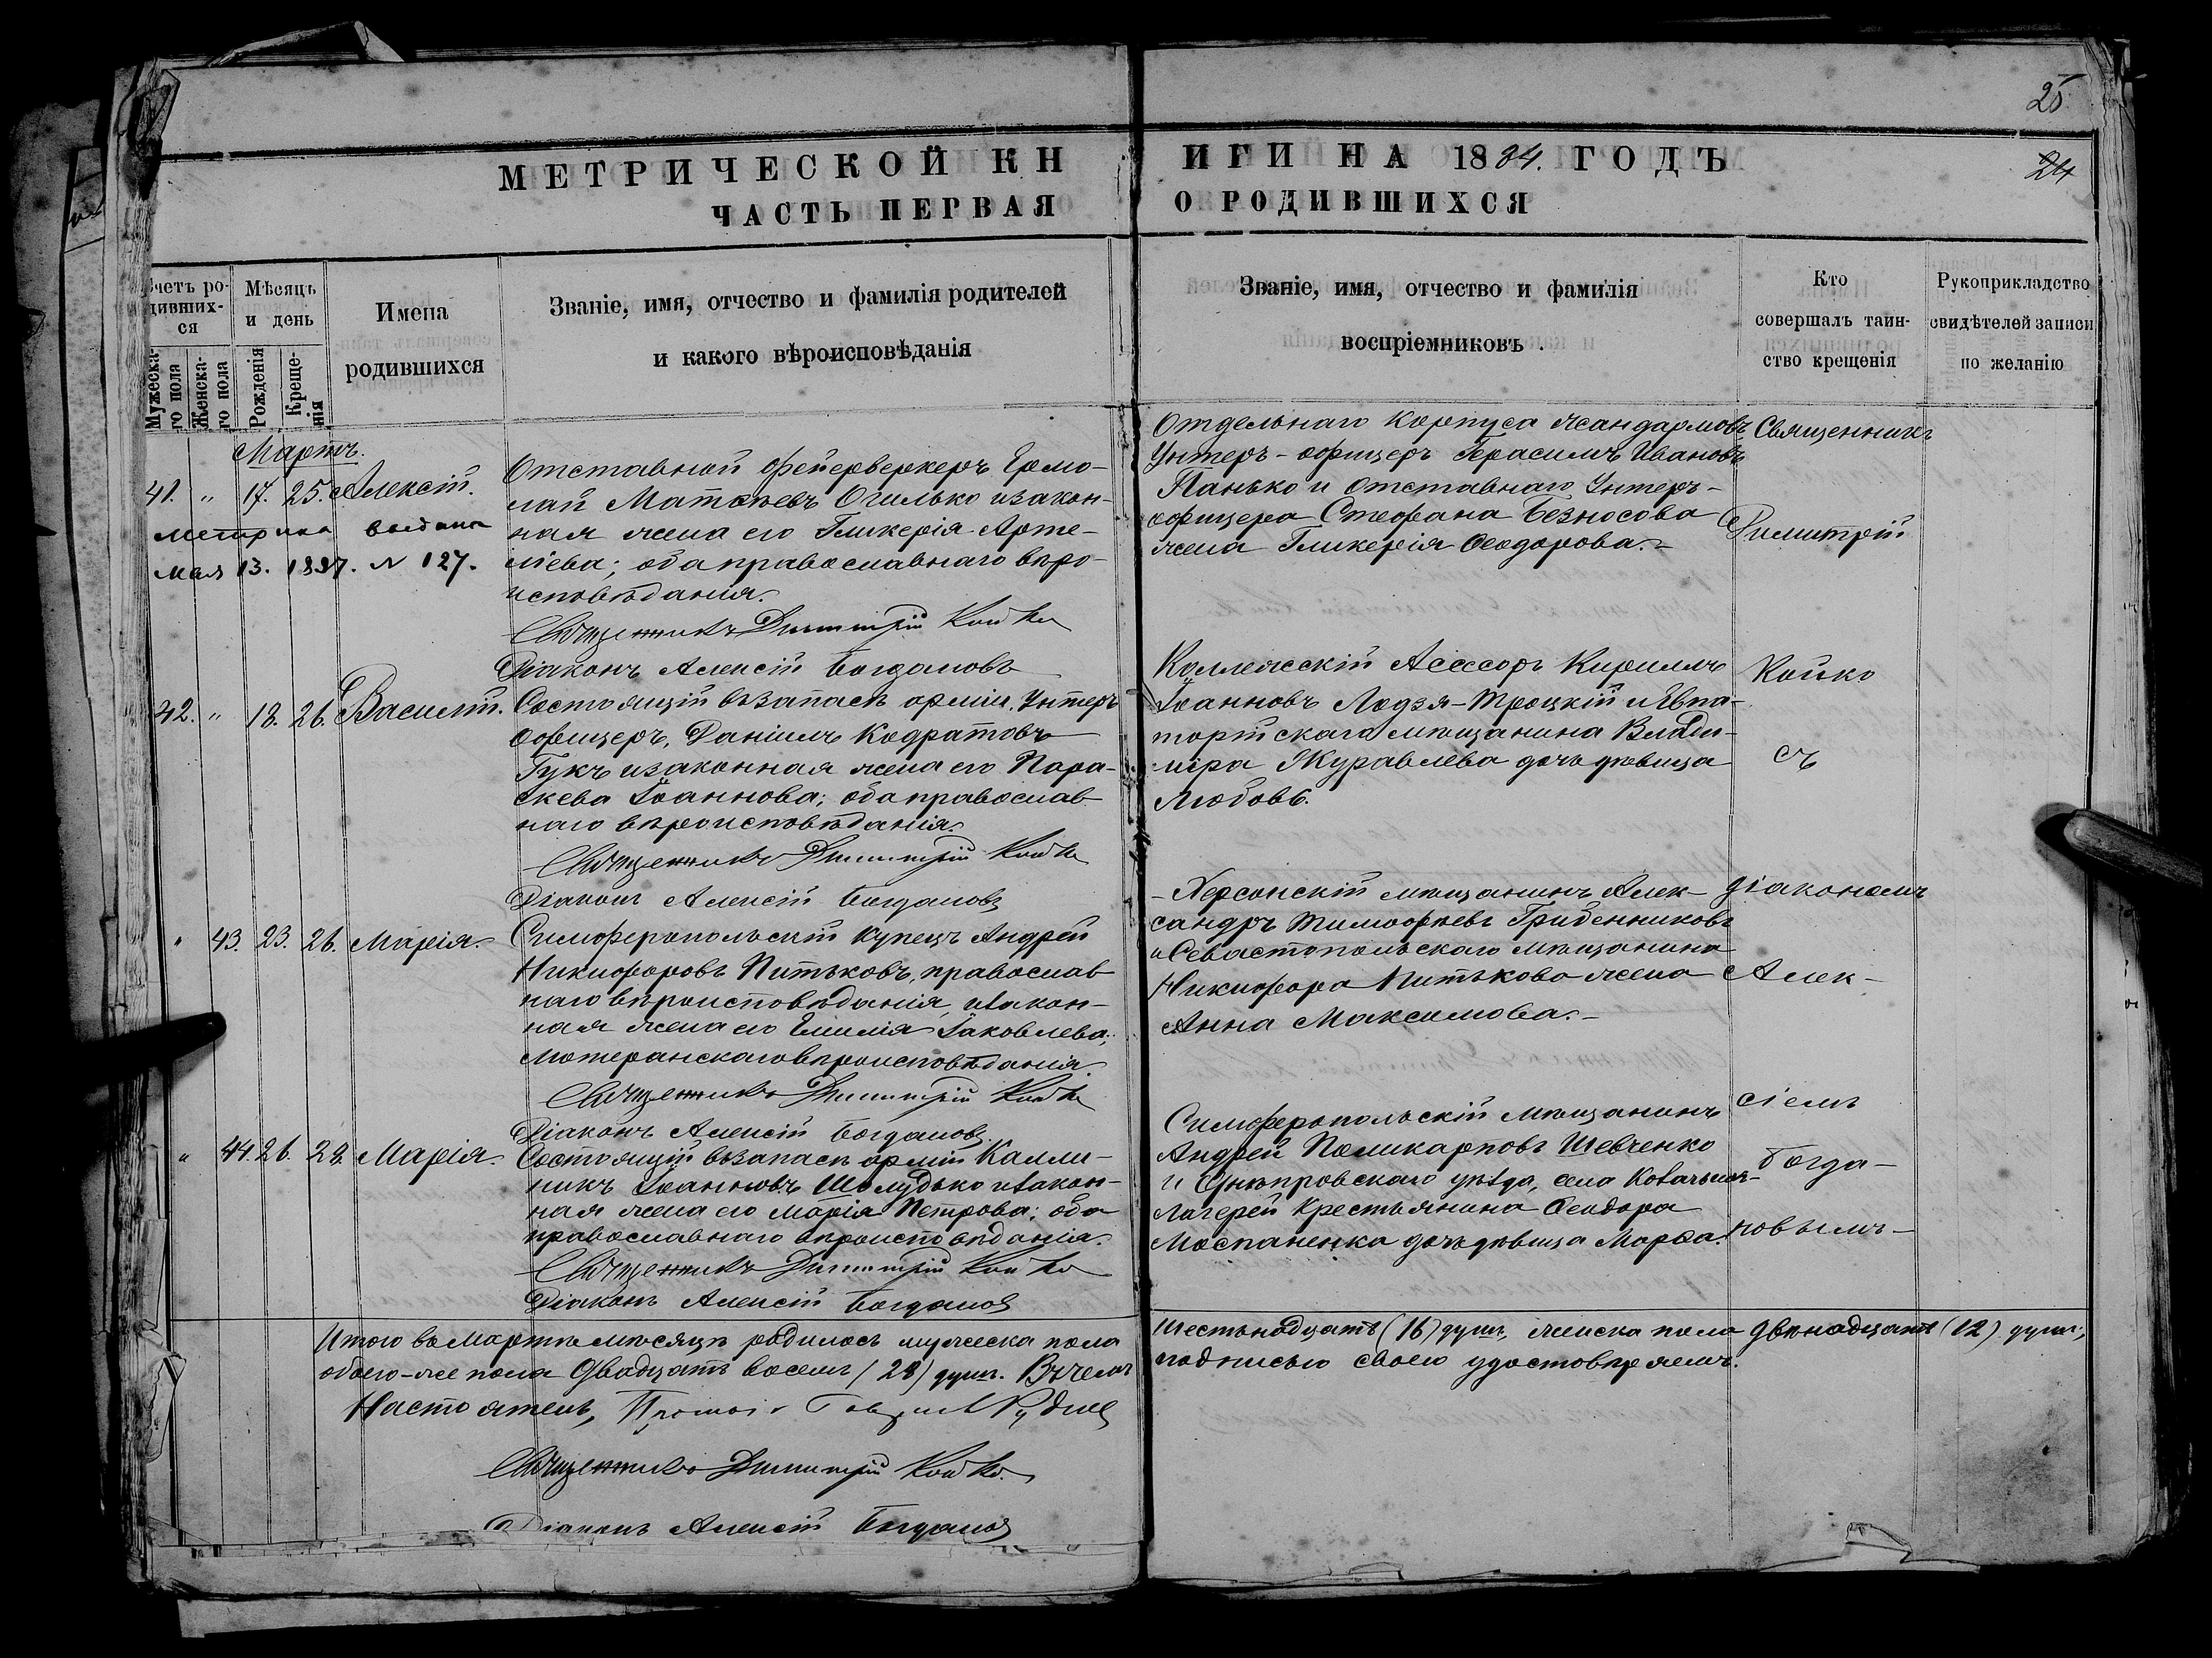 25
МЕТРИЧЕСКОЙ КНИГИ НА 1884. ГОДЪ
24
ЧАСТЬ ПЕРВАЯ О РОДИВШИХСЯ
Счетъ родившихся
Мужеска-го пола
Женска-го пола
Мѣсяцъ и день
Рожденія
Креще-нія
Имена
родившихся
Званіе, имя, отчество и фамилія родителей
и какого вѣроисповѣданія
Званіе, имя, отчество и фамилія
воспріемниковъ
Кто
совершалъ таин-
ство крещенія
Рукоприкладство
свидѣтелей записи
по желанію
Мартъ.
41. " 17. 25. Алексій.
Метрика выдана
мая 13. 1897. N 127.
Отставной фейерверкеръ Ермо-
лай Матѳѣевъ Огилько и закон-
ная жена его Гликерія Арте-
міева; оба православнаго вѣро-
исповѣданія.
Священникъ Димитрій Койко
Діаконъ Алексій Богдановъ
Отдѣльнаго Корпуса жандармовъ
Унтеръ-офицеръ Герасимъ Ивановъ
Панько и отставнаго Унтеръ-
офицера Стефана Безносова
жена Гликерія Ѳеодорова.-
42. " 18. 26. Василій.
Состоящій въ запасѣ арміи, Унтеръ
офицеръ, Даніилъ Кодратовъ
Гукъ и законная жена его Пара-
скева Іоаннова; оба православ
наго вѣроисповѣданія.
Священникъ Димитрій Койко
Діаконъ Алексій Богдановъ
Коллежскій Асессоръ Кириллъ
Іоанновъ Лодзя-Троцкій и Евпа-
торійскаго мѣщанина Влади-
міра Журавлева дочь дѣвица
Любовь.
" 43. 23. 26. Марія.
Симферопольскій купецъ Андрей
Никифоровъ Питьковъ, православ
наго вѣроисповѣданія, и закон-
ная жена его Емилія Іаковлева;
лютеранскаго вѣроисповѣданія.
Священникъ Димитрій Койко
Діаконъ Алексій Богдановъ
- Херсонскій мѣщанинъ Алек-
сандръ Тимофѣевъ Гребенниковъ
и Севастопольскаго мѣщанина
Никифора Питькова жена
Анна Максимова.-
" 44. 26. 29. Марія.
Состоящій въ запасѣ арміи Калли-
никъ Іоанновъ Шолудько и закон-
ная жена его Марія Петрова; оба
православнаго вѣроисповѣданія.
Священникъ Димитрій Койко
Діаконъ Алексій Богдановъ
Симферопольскій мѣщанинъ
Андрей Поликарповъ Шевченко
и Днѣпровскаго уѣзда, села Козачьихъ-
Лагерей крестьянина Ѳеодора
Моспаненка дочь дѣвица Марѳа.
Священникъ
Димитрій
Койко
съ
діакономъ
Алек-
сіемъ
Богда-
новымъ-
Итого въ Мартѣ мѣсяцѣ родилось мужеска пола Шестьнадцать (16) душъ, женска пола двѣнадцать (12) душъ;
обоего-же пола двадцать восемь (28) душъ. Въ чемъ подписью своею удостовѣряемъ.
Настоятель,
Священникъ Димитрій Койко.
Діаконъ Алексій Богдановъ